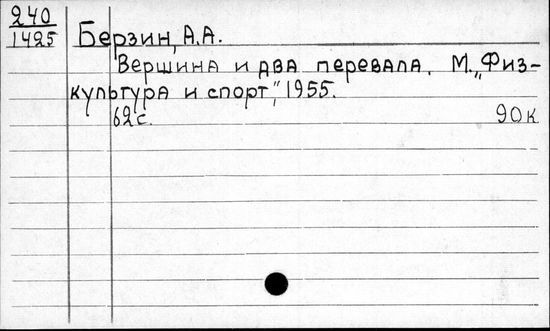 240
1425
Берзин, А.А.
Вершина и два перевала. М. „Физ-
культура и спорт“, 1955.
62с. 90к